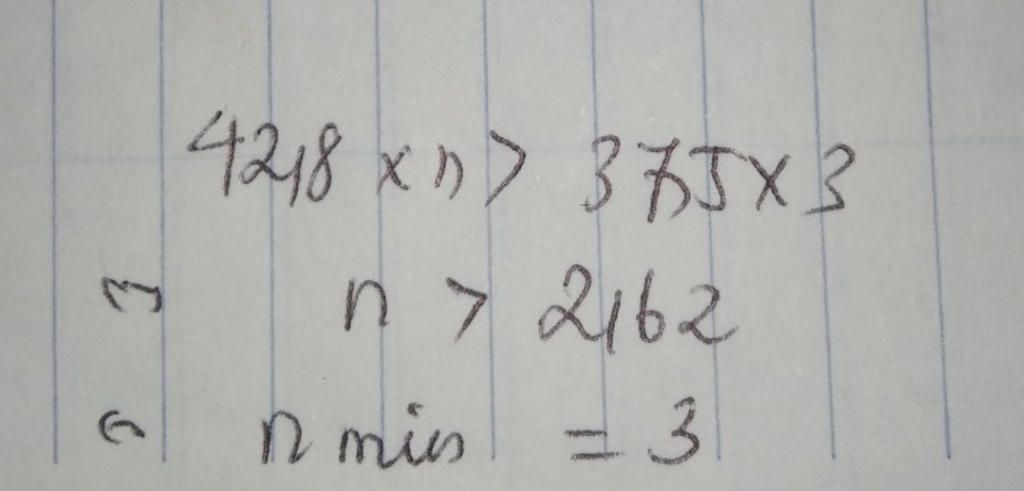 42,8 × n > 37,5 × 3
n > 2,62
n min = 3